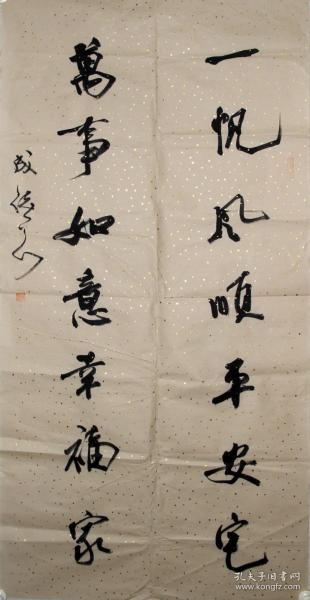 一帆风顺平安宅
萬事如意幸福家
孔夫子旧书网
www.kongfz.com